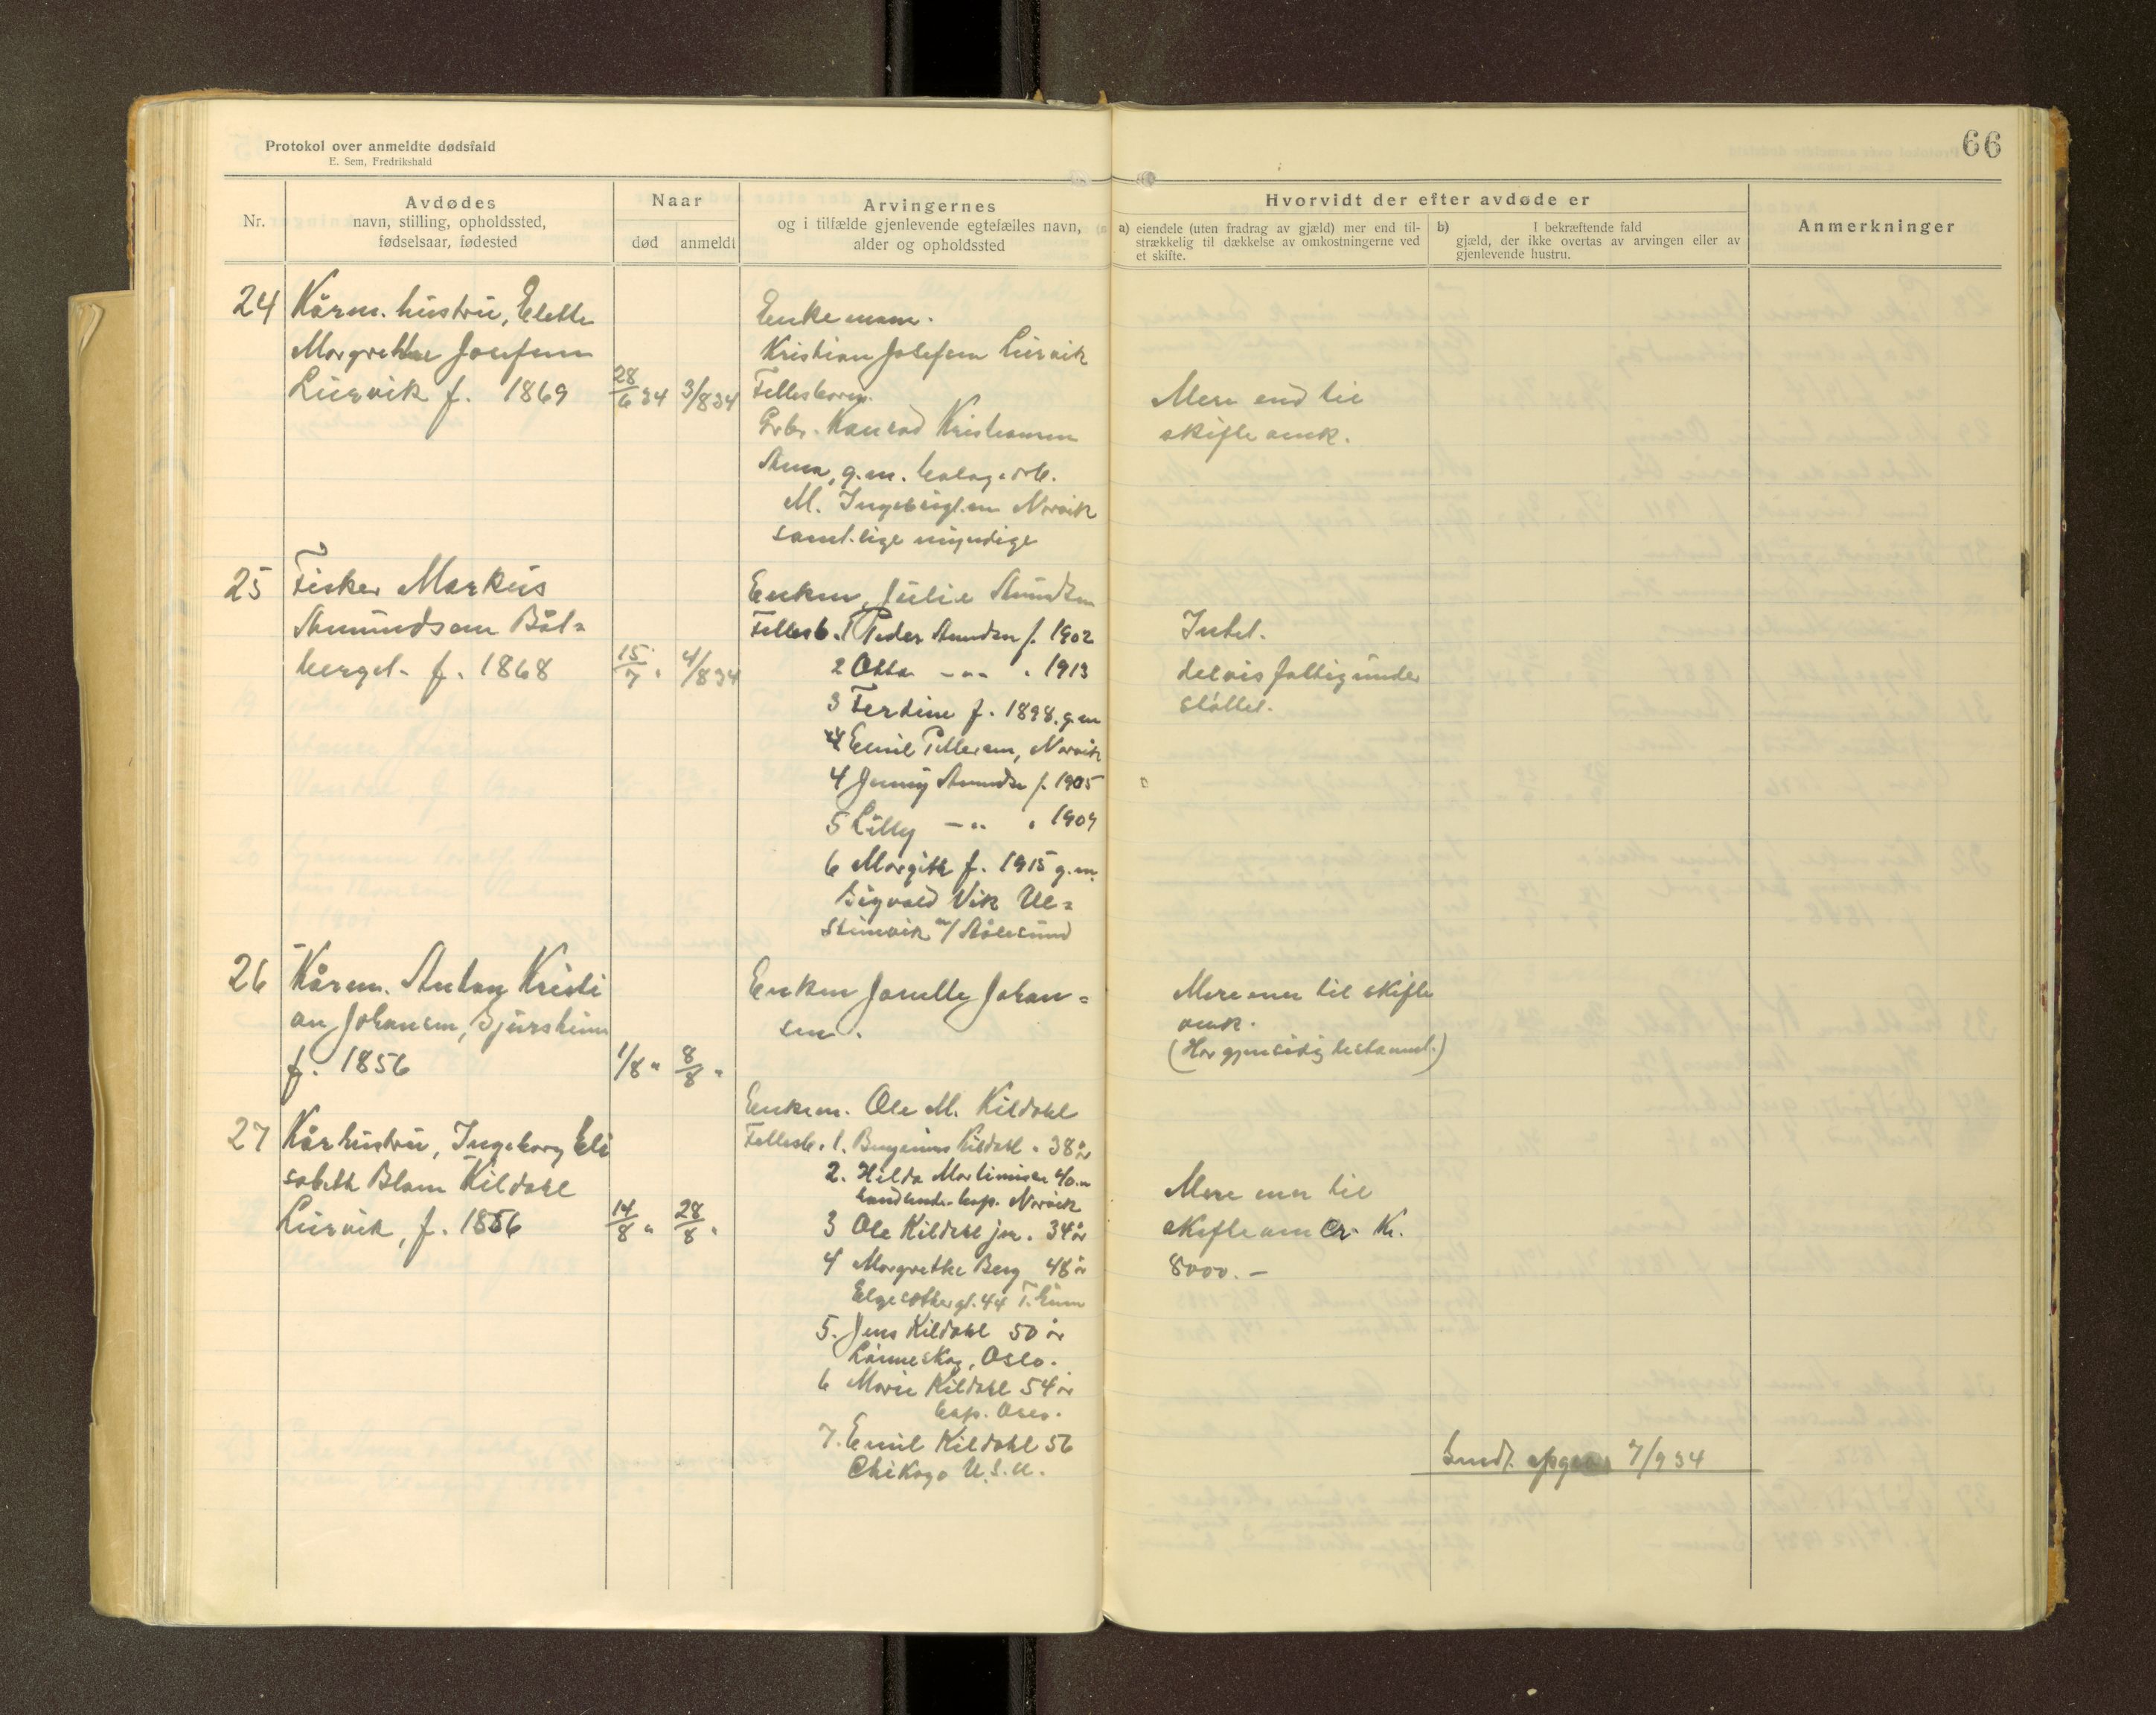 66
Protokol over anmeldte dødsfald
E. Sem, Fredrikshald
Nr.
Avdødes
navn, stilling, opholdssted,
fødselsaar, fødested
Naar
død
anmeldt
Arvingernes
og i tilfælde gjenlevende egtefælles navn,
alder og opholdssted
Hvorvidt der efter avdøde er
a) eiendele (uten fradrag av gjæld) mer end til-
strækkelig til dækkelse av omkostningerne ved
et skifte.
b) I bekræftende fald
gjæld, der ikke overtas av arvingen eller av
gjenlevende hustru.
Anmerkninger
24 Kårm. hustru, Elette
Margrethe Josefsen
Lürvik f. 1869
28/6 34
3/8 34
Enkemann.
Kristian Josefsen Lürvik
Fellesbarn.
Grbr. Konrad Kristiansen
Anna, g.m.
M. Ingebrigtsen Narvik
samtlige myndige
Mere end til
skifteomk.
25 Fisker Markus
Amundsen Bøl-
berget. f. 1868
15/7 "
4/8 34
Enken Julie Amundsen
Fellesb. 1 Peder Amundsen f. 1902
2 Otto - " - " 1913
3 Ferdine f. 1898. g.m
Emil Pettersen, Narvik
4 Jenny Amundsen f. 1905
5 Lilly - " " 1909
6 Margith f. 1915 g.m.
Sigvald Vik Ul-
steinvik m/ Ålesund
Intet.
delvis fattigunder
støttet.
26 Kårm. Anton Kristi
an Johansen, Sjursheim
f. 1856
1/8 "
8/8 "
Enken Janette Johan-
sen.
Mere enn til skifte
omk.
(Har gjensidig testament.)
27 Kårhustru, Ingeborg Eli
sabeth Blom Kildahl
Lürvik, f. 1856
14/8 "
28/8 "
Enkem. Ole M. Kildahl
Fellesb. 1. Kildahl. 38 år
2. Hilda Mortinsen 40 "
Narvik
3 Ole Kildahl jnr. 34 år
4 Margrethe Berg 48 år
Elgesethergt. 44 T.heim
5. Jens Kildahl 50 år
Lørneskog, Oslo.
6 Marie Kildahl 54 år
Oslo.
7. Emil Kildahl 56
Chikago U.S.A.
Mere enn til
skifteom Cr. Kr.
8000.-
7/9 34